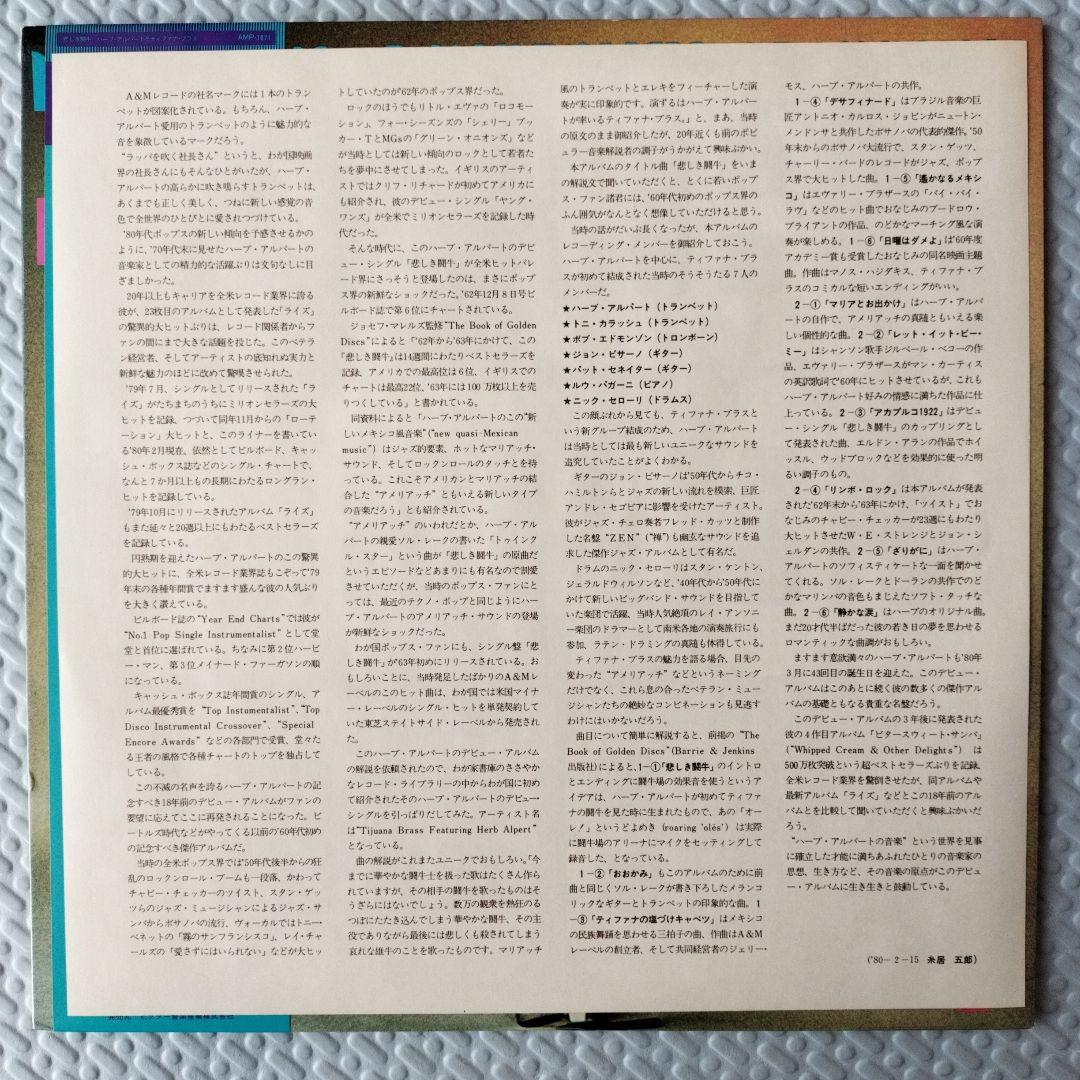 悲しき闘牛/ハーブ・アルパートとティファナ・ブラス
AMP-1871
A&Mレコードの社名マークには1本のトラン
ペットが図案化されている。もちろん、ハーブ・
アルパート愛用のトランペットのように魅力的な
音を象徴しているマークだろう。
“ラッパを吹く社長さん”というと、わが国映画
界の社長さんにもそんなひとがいたが、ハーブ・
アルパートの高らかに吹き鳴らすトランペットは、
あくまでも正しく美しく、つねに新しい感覚の音
色で全世界のひとびとに愛されつづけている。
'80年代ポップスの新しい傾向を予感させるかの
ように、'70年代末に見せたハーブ・アルパートの
音楽家としての精力的な活躍ぶりは文句なしに目
ざましかった。
20年以上もキャリアを全米レコード業界に誇る
彼が、23枚目のアルバムとして発表した「ライズ」
の驚異的大ヒットぶりは、レコード関係者からフ
ァンの間にまで大きな話題を投じた。このベテラ
ン経営者、そしてアーティストの底知れぬ実力と
新鮮な魅力のほどに改めて驚嘆させられた。
'79年7月、シングルとしてリリースされた「ラ
イズ」がたちまちのうちにミリオンセラーズの大
ヒットを記録、つづいて同年11月からの「ローテ
ーション」大ヒットと、このライナーを書いてい
る'80年2月現在、依然としてビルボード、キャッ
シュ・ボックス誌などのシングル・チャートで、
なんと7か月以上もの長期にわたるロングラン・
ヒットを記録している。
'79年10月にリリースされたアルバム「ライズ」
もまた延々と20週以上にもわたるベストセラーズ
を記録している。
円熟期を迎えたハーブ・アルパートのこの驚異
的大ヒットに、全米レコード業界誌もこぞって'79
年末の各種年間賞でますます盛んな彼の人気ぶり
を大きく讃えている。
ビルボード誌の“Year End Charts”では彼が
“No.1 Pop Single Instrumentalist”として堂
堂と首位に選ばれている。ちなみに第2位ハービ
ー・マン、第3位メイナード・ファーガソンの順
になっている。
キャッシュ・ボックス誌年間賞のシングル、ア
ルバム最優秀賞を“Top Instumentalist”、“Top
Disco Instrumental Crossover”、“Special
Encore Awards”などの各部門で受賞、堂々た
る王者の風格で各種チャートのトップを独占して
している。
この不滅の名声を誇るハーブ・アルパートの記
念すべき18年前のデビュー・アルバムがファンの
要望に応えてここに再発されることになった。ビ
ートルズ時代などがやってくる以前の'60年代初め
の記念すべき傑作アルバムだ。
当時の全米ポップス界では'50年代後半からの狂
乱のロックンロール・ブームも一段落、かわって
チャビー・チェッカーのツイスト、スタン・ゲッ
ツらのジャズ・ミュージシャンによるジャズ・サ
ンバからボサノバの流行、ヴォーカルではトニー・
ベネットの「霧のサンフランシスコ」、レイ・チャ
ールズの「愛さずにはいられない」などが大ヒッ
トしていたのが'62年のポップス界だった。
ロックのほうでもリトル・エヴァの「ロコモー
ション」、フォー・シーズンズの「シェリー」ブッ
カー・TとMGsの「グリーン・オニオンズ」など
が当時としては新しい傾向のロックとして若者た
ちを夢中にさせてしまった。イギリスのアーティ
ストではクリフ・リチャードが初めてアメリカに
も紹介され、彼のデビュー・シングル「ヤング・
ワンズ」が全米でミリオンセラーズを記録した時
代だった。
そんな時代に、このハーブ・アルパートのデビ
ュー・シングル「悲しき闘牛」が全米ヒットパレ
ード界にさっそうと登場したのは、まさにポップ
ス界の新鮮なショックだった。'62年12月8日号ビ
ルボード誌で第6位にチャートされている。
ジョセフ・マレルズ監修“The Book of Golden
Discs”によると「'62年から'63年にかけて、この
「悲しき闘牛」は14週間にわたりベストセラーズを
記録、アメリカでの最高位は6位、イギリスでの
チャートは最高22位、'63年には100万枚以上を売
りつくしている」と書かれている。
同資料によると「ハーブ・アルパートのこの“新
しいメキシコ風音楽”(“new quasi-Mexican
music”)はジャズ的要素、ホットなマリアッチ・
サウンド、そしてロックンロールのタッチとを持
っている。これこそアメリカンとマリアッチの結
合した“アメリアッチ”ともいえる新しいタイプ
の音楽だろう」とも紹介されている。
“アメリアッチ”のいわれだとか、ハーブ・アル
パートの親愛ソル・レークの書いた「トゥインク
ル・スター」という曲が「悲しき闘牛」の原曲だ
というエピソードなどあまりにも有名なので割愛
させていただくが、当時のポップス・ファンにと
っては、最近のテクノ・ポップと同じようにハー
ブ・アルパートのアメリアッチ・サウンドの登場
が新鮮なショックだった。
わが国ポップス・ファンにも、シングル盤「悲
しき闘牛」が'63年初めにリリースされている。お
もしろいことに、当時発足したばかりのA&Mレ
ーベルのこのヒット曲は、わが国では米国マイナ
ー・レーベルのシングル・ヒットを単発契約して
いた東芝ステイトサイド・レーベルから発売され
た。
このハーブ・アルパートのデビュー・アルバム
の解説を依頼されたので、わが家書庫のささやか
なレコード・ライブラリーの中からわが国に初め
て紹介されたそのハーブ・アルパートのデビュー・
シングルを引っぱりだしてみた。アーティスト名
は“Tijuana Brass Featuring Herb Alpert”
となっている。
曲の解説がこれまたユニークでおもしろい。「今
までに華やかな闘牛士を扱った歌はたくさん作ら
れていますが、その相手の闘牛を歌ったものはそ
うざらにはないでしょう。数万の観衆を熱狂のる
つぼにたたき込んでしまう華やかな闘牛、その主
役でありながら最後には悲しくも殺されてしまう
哀れな雄牛のことを歌ったものです。マリアッチ
風のトランペットとエレキをフィーチャーした演
奏が実に印象的です。演ずるはハーブ・アルパー
トが率いるティファナ・ブラス。」と、まあ、当時
の原文のまま御紹介したが、20年近くも前のポピ
ュラー音楽解説者の調子がうかがえて興味ぶかい。
本アルバムのタイトル曲「悲しき闘牛」をいま
の解説文で聞いていただくと、とくに若いポップ
ス・ファン諸君には、'60年代初めのポップス界の
ふん囲気がなんとなく想像していただけると思う。
当時の話がだいぶ長くなったが、本アルバムの
レコーディング・メンバーを御紹介しておこう。
ハーブ・アルパートを中心に、ティファナ・ブラ
スが初めて結成された当時のそうそうたる7人の
メンバーだ。
★ハーブ・アルパート(トランペット)
★トニ・カラッシュ(トランペット)
★ボブ・エドモンソン(トロンボーン)
★ジョン・ピサーノ(ギター)
★パット・セネイター(ギター)
★ルウ・パガーニ(ピアノ)
★ニック・セローリ(ドラムス)
この顔ぶれから見ても、ティファナ・ブラスと
いう新グループ結成のため、ハーブ・アルパート
は当時としては最も新しいユニークなサウンドを
追究していたことがよくわかる。
ギターのジョン・ピサーノは'50年代からチコ・
ハミルトンらとジャズの新しい流れを模索、巨匠
アンドレ・セゴビアに影響を受けたアーティスト。
彼がジャズ・チェロ奏者フレッド・カッツと制作
した名盤“ZEN”(“禅”)も幽玄なサウンドを追
求した傑作ジャズ・アルバムとして有名だ。
ドラムのニック・セローリはスタン・ケントン、
ジェラルドウィルソンなど、'40年代から'50年代に
かけて新しいビッグバンド・サウンドを目指して
いた楽団で活躍、当時人気絶頂のレイ・アンソニ
ー楽団のドラマーとして南米各地の演奏旅行にも
参加、ラテン・ドラミングの真随も体得している。
ティファナ・ブラスの魅力を語る場合、目先の
変わった“アメリアッチ”などというネーミング
だけでなく、これら息の合ったベテラン・ミュー
ジシャンたちの絶妙なコンビネーションも見逃す
わけにはいかないだろう。
曲目について簡単に解説すると、前掲の“The
Book of Golden Discs”(Barrie & Jenkins
出版社)によると、1-①「悲しき闘牛」のイントロ
とエンディングに闘牛場の効果音を使うというア
イデアは、ハーブ・アルパートが初めてティファ
ナの闘牛を見た時に生まれたもので、あの「オー
レ!」というどよめき(roaring 'olés')は実際
に闘牛場のアリーナにマイクをセッティングして
録音した、となっている。
1-②「おおかみ」もこのアルバムのために前
曲と同じくソル・レークが書き下ろしたメランコ
リックなギターとトランペットの印象的な曲。1
-③「ティファナの塩づけキャベツ」はメキシコ
の民族舞踊を思わせる三拍子の曲、作曲はA&M
レーベルの創立者、そして共同経営者のジェリー・
モス、ハーブ・アルパートの共作。
1-④「デサフィナード」はブラジル音楽の巨
匠アントニオ・カルロス・ジョビンがニュートン・
メンドンサと共作したボサノバの代表的傑作。'50
年末からのボサノバ大流行で、スタン・ゲッツ、
チャーリー・バードのレコードがジャズ、ポップ
ス界で大ヒットした曲。1-⑤「遙かなるメキシ
コ」はエヴァリー・ブラザースの「バイ・バイ・
ラヴ」などのヒット曲でおなじみのブードロウ・
ブライアントの作品、のどかなマーチング風な演
奏が楽しめる。1-⑥「日曜はダメよ」は'60年度
アカデミー賞も受賞したおなじみの同名映画主題
曲。作曲はマノス・ハジダキス、ティファナ・ブ
ラスのコミカルな短いエンディングがいい。
2-①「マリアとお出かけ」はハーブ・アルパ
ートの自作で、アメリアッチの真随ともいえる楽
しい個性的な曲。2-②「レット・イット・ビー・
ミー」はシャンソン歌手ジルベール・ベコーの作
品、エヴァリー・ブラザースがマン・カーティス
の英訳歌詞で'60年にヒットさせているが、これも
ハーブ・アルパート好みの情感に満ちた作品に仕
上っている。2-③「アカプルコ1922」はデビュ
ー・シングル「悲しき闘牛」のカップリングとし
て発表された曲、エルドン・アランの作品でホイ
ッスル、ウッドブロックなどを効果的に使った明
るい調子のもの。
2-④「リンボ・ロック」は本アルバムが発表
された'62年末から'63年にかけ、「ツイスト」でお
なじみのチャビー・チェッカーが23週にもわたり
大ヒットさせたW・E・ストレンジとジョン・シ
ェルダンの共作。2-⑤「ざりがに」はハーブ・
アルパートのソフィスティケートな一面を聞かせ
てくれる。ソル・レークとドーランの共作でのど
かなマリンバの音色もまじえたソフト・タッチな
曲。2-⑥「静かな涙」はハーブのオリジナル曲。
まだ20才半ばだった彼の若き日の夢を思わせる
ロマンティックな曲調がおもしろい。
ますます意欲満々のハーブ・アルパートも'80年
3月に43回目の誕生日を迎えた。このデビュー・
アルバムはこのあとに続く彼の数多くの傑作アル
バムの基礎ともなる貴重な名盤だろう。
このデビュー・アルバムの3年後に発表された
彼の4作目アルバム「ビタースウィート・サンバ」
(“Whipped Cream & Other Delights”)は
500万枚突破という超ベストセラーズぶりを記録、
全米レコード業界を驚倒させたが、同アルバムや
最新アルバム「ライズ」などとこの18年前のアル
バムとを比較して聞いていただくと興味ぶかいだ
ろう。
“ハーブ・アルパートの音楽”という世界を見事
に確立した才能に満ちあふれたひとりの音楽家の
思想、生き方など、その音楽の原点がこのデビュ
ー・アルバムに生き生きと鼓動している。
('80-2-15 糸居 五郎)